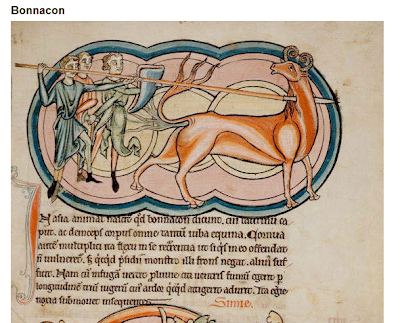 Bonnacon
N asia animal nascit qd bonnacon dicunt, cui taurinu ca
put, ac deinceps corpus omne tantu iuba equina. Cornua
aute multiplici ita flexu in se recurrentia ut si qis in eo offendat
n vulneret. s; qicqd psidii monstro illi frons negat, aluus suf
ficit. Nam cu in fuga uertit citi uentris fimu egerit p
longitudine triu iugeru cui ardor qicqd attigerit adurit. Ita egie
noxia submouet insequentes. Simie.